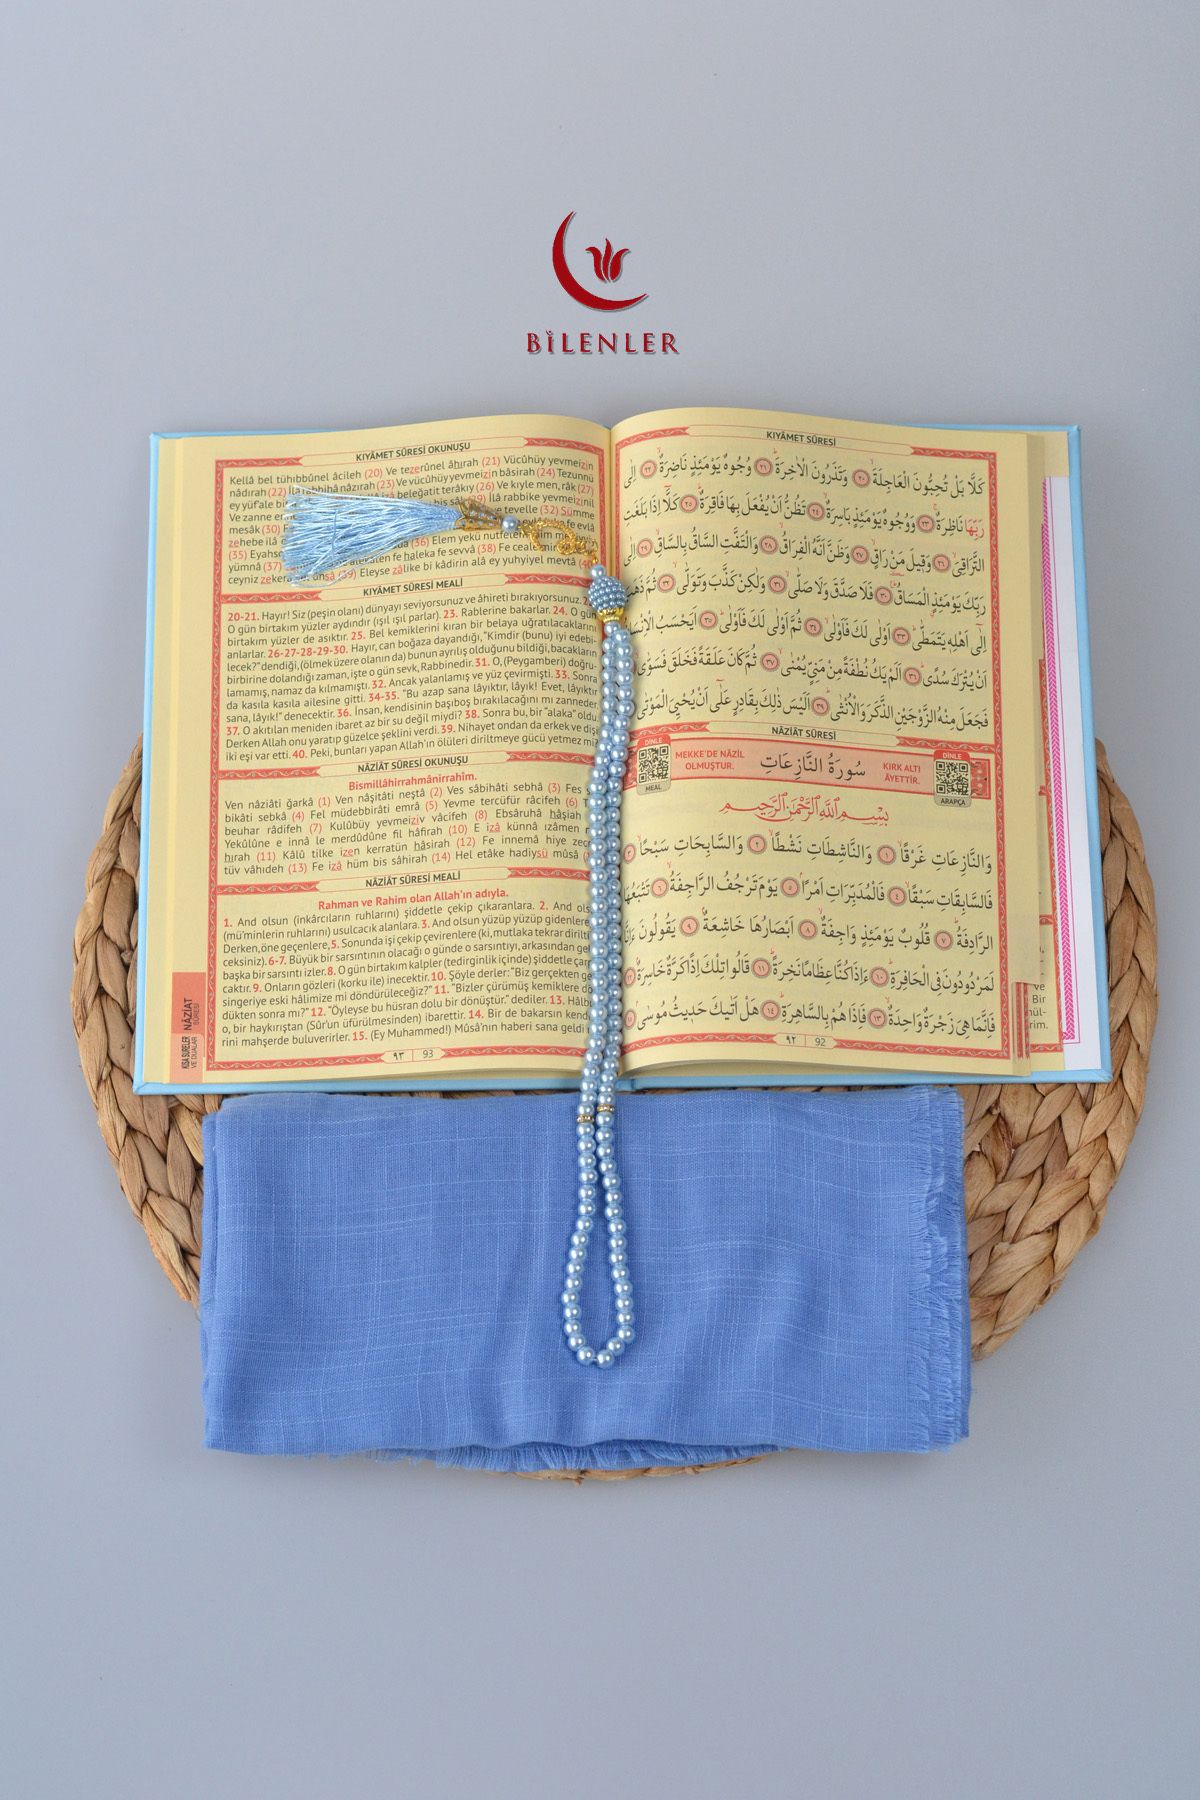 BİLENLER
KIYÂMET SÛRESİ OKUNUŞU
Kellâ bel tühıbbûnel âcileh (20) Ve tezerûnel âhırah (21) Vücûhüy yevmeizin
nâdırah (22) İlâ rabbihâ nâzırah (23) Ve vücûhüy yevmeizin bâsirah (24) Tezunnü
ey yüf'ale beleğatit terâkıy (26) Ve kıyle men, râk (27)
Ve zanne İlâ rabbike yevmeizinil
mesâk (30) tevelle (32) Sümme
zehebe ilâ
(35) Eyahse (36) Elem yekü nutfeten
yümnâ (37) alekaten fe haleka fe sevvâ (38) Fe ceale
ceyniz zekera (39) Eleyse zâlike bi kâdirin alâ ey yuhyiyel mevtâ
KIYÂMET SÛRESİ MEALİ
20-21. Hayır! Siz (peşin olanı) dünyayı seviyorsunuz ve âhireti bırakıyorsunuz.
O gün birtakım yüzler aydındır (ışıl ışıl parlar). 23. Rablerine bakarlar. 24. O gün
birtakım yüzler de asıktır. 25. Bel kemiklerini kıran bir belaya uğratılacaklarını
anlarlar. 26-27-28-29-30. Hayır, can boğaza dayandığı, "Kimdir (bunu) iyi edebi-
lecek?" dendiği, (ölmek üzere olanın da) bunun ayrılış olduğunu bildiği, bacakların
birbirine dolandığı zaman, işte o gün sevk, Rabbinedir. 31. O, (Peygamberi) doğru-
lamamış, namaz da kılmamıştı. 32. Ancak yalanlamış ve yüz çevirmişti. 33. Sonra
da kasıla kasıla ailesine gitti. 34-35. "Bu azap sana lâyıktır, lâyık! Evet, lâyıktır
sana, lâyık!" denecektir. 36. İnsan, kendisinin başıboş bırakılacağını mı zanneder.
37. O akıtılan meniden ibaret az bir su değil miydi? 38. Sonra bu, bir "alaka" oldu.
Derken Allah onu yaratıp güzelce şeklini verdi. 39. Nihayet ondan da erkek ve dişi
iki eşi var etti. 40. Peki, bunları yapan Allah'ın ölüleri diriltmeye gücü yetmez mi
NÂZİÂT SÛRESİ OKUNUŞU
Bismillâhirrahmânirrahîm.
Ven nâziâti ğarkâ (1) Ven nâşitâti neştâ (2) Ves sâbihâti sebhâ (3) Fes
bikâti sebkâ (4) Fel müdebbirâti emrâ (5) Yevme tercüfür râcifeh (6)
beuhar râdifeh (7) Kulûbüy yevmeiziv vâcifeh (8) Ebsâruhâ hâşiah
Yekûlûne e innâ le merdûdûne fil hâfirah (10) E izâ künnâ ızâmen
hırah (11) Kâlû tilke izen kerratün hâsirah (12) Fe innemâ hiye
tüv vâhıdeh (13) Fe izâ hüm bis sâhirah (14) Hel etâke hadiysü mûsâ
NÂZİÂT SÛRESİ MEALİ
Rahman ve Rahim olan Allah'ın adıyla.
1. And olsun (inkârcıların ruhlarını) şiddetle çekip çıkaranlara. 2. And
(mü'minlerin ruhlarını) usulcacık alanlara. 3. And olsun yüzüp yüzüp gidenlere
Derken, öne geçenlere, 5. Sonunda işi çekip çevirenlere (ki, mutlaka tekrar
ceksiniz). 6-7. Büyük bir sarsıntının olacağı o günde o sarsıntıyı, arkasından
başka bir sarsıntı izler. 8. O gün birtakım kalpler (tedirginlik içinde) şiddetle
caktır. 9. Onların gözleri (korku ile) inecektir. 10. Şöyle derler: "Biz gerçekten
singeriye eski hâlimize mi döndürüleceğiz?" 11. "Bizler çürümüş kemiklere
dükten sonra mı?" 12. "Öyleyse bu hüsran dolu bir dönüştür." dediler. 13.
o, bir haykırıştan (Sûr'un üfürülmesinden) ibarettir. 14. Bir de bakarsın
rini mahşerde buluverirler. 15. (Ey Muhammed!) Mûsâ'nın haberi sana geldi
KISA SÛRELER
VE DUALAR
NÂZİAT
SÛRESİ
٩٣ 93
KIYÂMET SÛRESİ
كَلَّا بَلْ تُحِبُّونَ الْعَاجِلَةَ ٢٠ وَتَذَرُونَ الْاٰخِرَةَ ٢١ وُجُوهٌ يَوْمَئِذٍ نَاضِرَةٌ ٢٢ اِلٰى
رَبِّهَا نَاظِرَةٌ ٢٣ وَوُجُوهٌ يَوْمَئِذٍ بَاسِرَةٌ ٢٤ تَظُنُّ اَنْ يُفْعَلَ بِهَا فَاقِرَةٌ ٢٥ كَلَّا اِذَا بَلَغَتِ
التَّرَاقِيَ ٢٦ وَقِيلَ مَنْ رَاقٍ ٢٧ وَظَنَّ اَنَّهُ الْفِرَاقُ ٢٨ وَالْتَفَّتِ السَّاقُ بِالسَّاقِ ٢٩ اِلٰى
رَبِّكَ يَوْمَئِذٍ الْمَسَاقُ ٣٠ فَلَا صَدَّقَ وَلَا صَلّٰى ٣١ وَلٰكِنْ كَذَّبَ وَتَوَلّٰى ٣٢ ثُمَّ
اِلٰٓى اَهْلِهِ يَتَمَطّٰى ٣٣ اَوْلٰى لَكَ فَاَوْلٰى ٣٤ ثُمَّ اَوْلٰى لَكَ فَاَوْلٰى ٣٥ اَيَحْسَبُ
اَنْ يُتْرَكَ سُدًى ٣٦ اَلَمْ يَكُ نُطْفَةً مِنْ مَنِيٍّ يُمْنٰى ٣٧ ثُمَّ كَانَ عَلَقَةً فَخَلَقَ فَسَوّٰى
فَجَعَلَ مِنْهُ الزَّوْجَيْنِ الذَّكَرَ وَالْاُنْثٰى ٣٩ اَلَيْسَ ذٰلِكَ بِقَادِرٍ عَلٰٓى اَنْ يُحْيِيَ الْمَوْتٰى
NÂZİÂT SÛRESİ
DİNLE
MEAL
MEKKE'DE NÂZİL
OLMUŞTUR.
سُورَةُ النَّازِعَاتِ
KIRK ALTI
ÂYETTİR.
DİNLE
ARAPÇA
بِسْمِ اللّٰهِ الرَّحْمٰنِ الرَّحِيمِ
وَالنَّازِعَاتِ غَرْقًا ١ وَالنَّاشِطَاتِ نَشْطًا ٢ وَالسَّابِحَاتِ سَبْحًا ٣
فَالسَّابِقَاتِ سَبْقًا ٤ فَالْمُدَبِّرَاتِ اَمْرًا ٥ يَوْمَ تَرْجُفُ الرَّاجِفَةُ ٦ تَتْبَعُهَا
الرَّادِفَةُ ٧ قُلُوبٌ يَوْمَئِذٍ وَاجِفَةٌ ٨ اَبْصَارُهَا خَاشِعَةٌ ٩ يَقُولُونَ
لَمَرْدُودُونَ فِي الْحَافِرَةِ ١٠ ءَاِذَا كُنَّا عِظَامًا نَخِرَةً ١١ قَالُوا تِلْكَ اِذًا كَرَّةٌ خَاسِرَةٌ
فَاِنَّمَا هِيَ زَجْرَةٌ وَاحِدَةٌ ١٣ فَاِذَا هُمْ بِالسَّاهِرَةِ ١٤ هَلْ اَتٰيكَ حَدِيثُ مُوسٰى
٩٢ 92